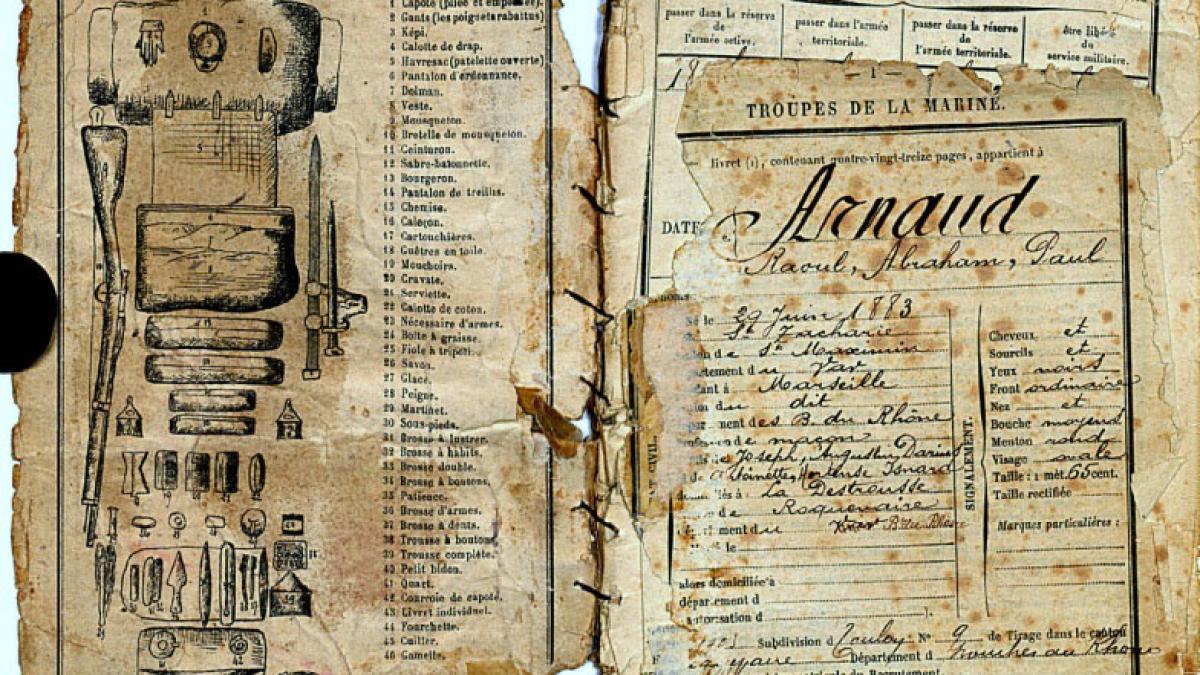 1 Capote (pliée et empotée).
2 Gants (les poignets rabattus)
3 Képi.
4 Calotte de drap.
5 Havresac (patelette ouverte)
6 Pantalon d'ordonnance.
7 Dolman.
8 Veste.
9 Mousqueton.
10 Bretelle de mousqueton.
11 Ceinturon.
12 Sabre-baïonnette.
13 Bourgeron.
14 Pantalon de treillis.
15 Chemise.
16 Caleçon.
17 Cartouchières.
18 Guêtres en toile.
19 Mouchoirs.
20 Cravate.
21 Serviette.
22 Calotte de coton.
23 Nécessaire d'armes.
24 Boîte à graisse.
25 Fiole à tripoli.
26 Savon.
27 Glace.
28 Peigne.
29 Martinet.
30 Sous-pieds.
31 Brosse à lustrer.
32 Brosse à habits.
33 Brosse double.
34 Brosse à boutons.
35 Patience.
36 Brosse d'armes.
37 Brosse à dents.
38 Trousse à boutons.
39 Trousse complète.
40 Petit bidon.
41 Quart.
42 Courroie de capote.
43 Livret individuel.
44 Fourchette.
45 Cuiller.
46 Gamelle.
passer dans la réserve de l'armée active.
passer dans l'armée territoriale.
passer dans la réserve de l'armée territoriale.
être libéré du service militaire.
— 1 —
TROUPES DE LA MARINE.
livret (1), contenant quatre-vingt-treize pages, appartient à
DATE
Arnaud
Raoul, Abraham, Paul
né le 29 Juin 1883
St Zacharie
on de St Maximin
artement du Var
dant à Marseille
on du dit
partement des B. du Rhône
on de maçon
ls de Joseph, Augustin, Darius
Hortense Isnard
domiciliés à La Destrousse
de Roquevaire
rtement du Var B. du Rhône
le
alors domicilié à
département d
autorisation d
ÉTAT CIVIL.
SIGNALEMENT.
Cheveux et
Sourcils et
Yeux noirs
Front ordinaire
Nez et
Bouche moyenne
Menton rond
Visage ovale
Taille : 1 mèt. 65 cent.
Taille rectifiée
Marques particulières :
Subdivision d Toulon N° 9 de Tirage dans le canton
Département d Bouches du Rhône
matricule du Recrutement.